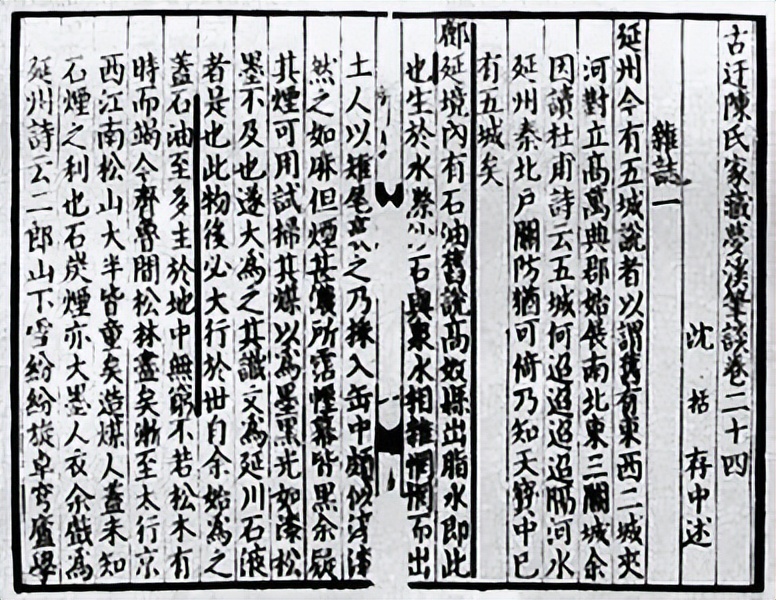 古迂陳氏家藏夢溪筆談卷二十四
沈括存中述
雜誌一
延州今有五城說者以謂舊有東西二城夾
河對立高萬典郡始展南北東三關城余
因讀杜甫詩云五城何迢迢迢迢隔河水
延州秦北戶關防猶可倚乃知天寶中已
有五城矣
鄜延境內有石油舊說高奴縣出脂水即此
也生於水際沙石與泉水相雜惘惘而出
土人以雉尾裛之乃採入缶中頗似淳漆
然之如麻但煙甚濃所霑幄幕皆黑余疑
其煙可用試掃其煤以為墨黑光如漆松
墨不及也遂大為之其識文為延川石液
者是也此物後必大行於世自余始為之
蓋石油至多生於地中無窮不若松木有
時而竭今齊魯間松林盡矣漸至太行京
西江南松山大半皆童矣造煤人蓋未知
石煙之利也石炭煙亦大墨人衣余戲為
延州詩云二郎山下雪紛紛旋卓穹廬學